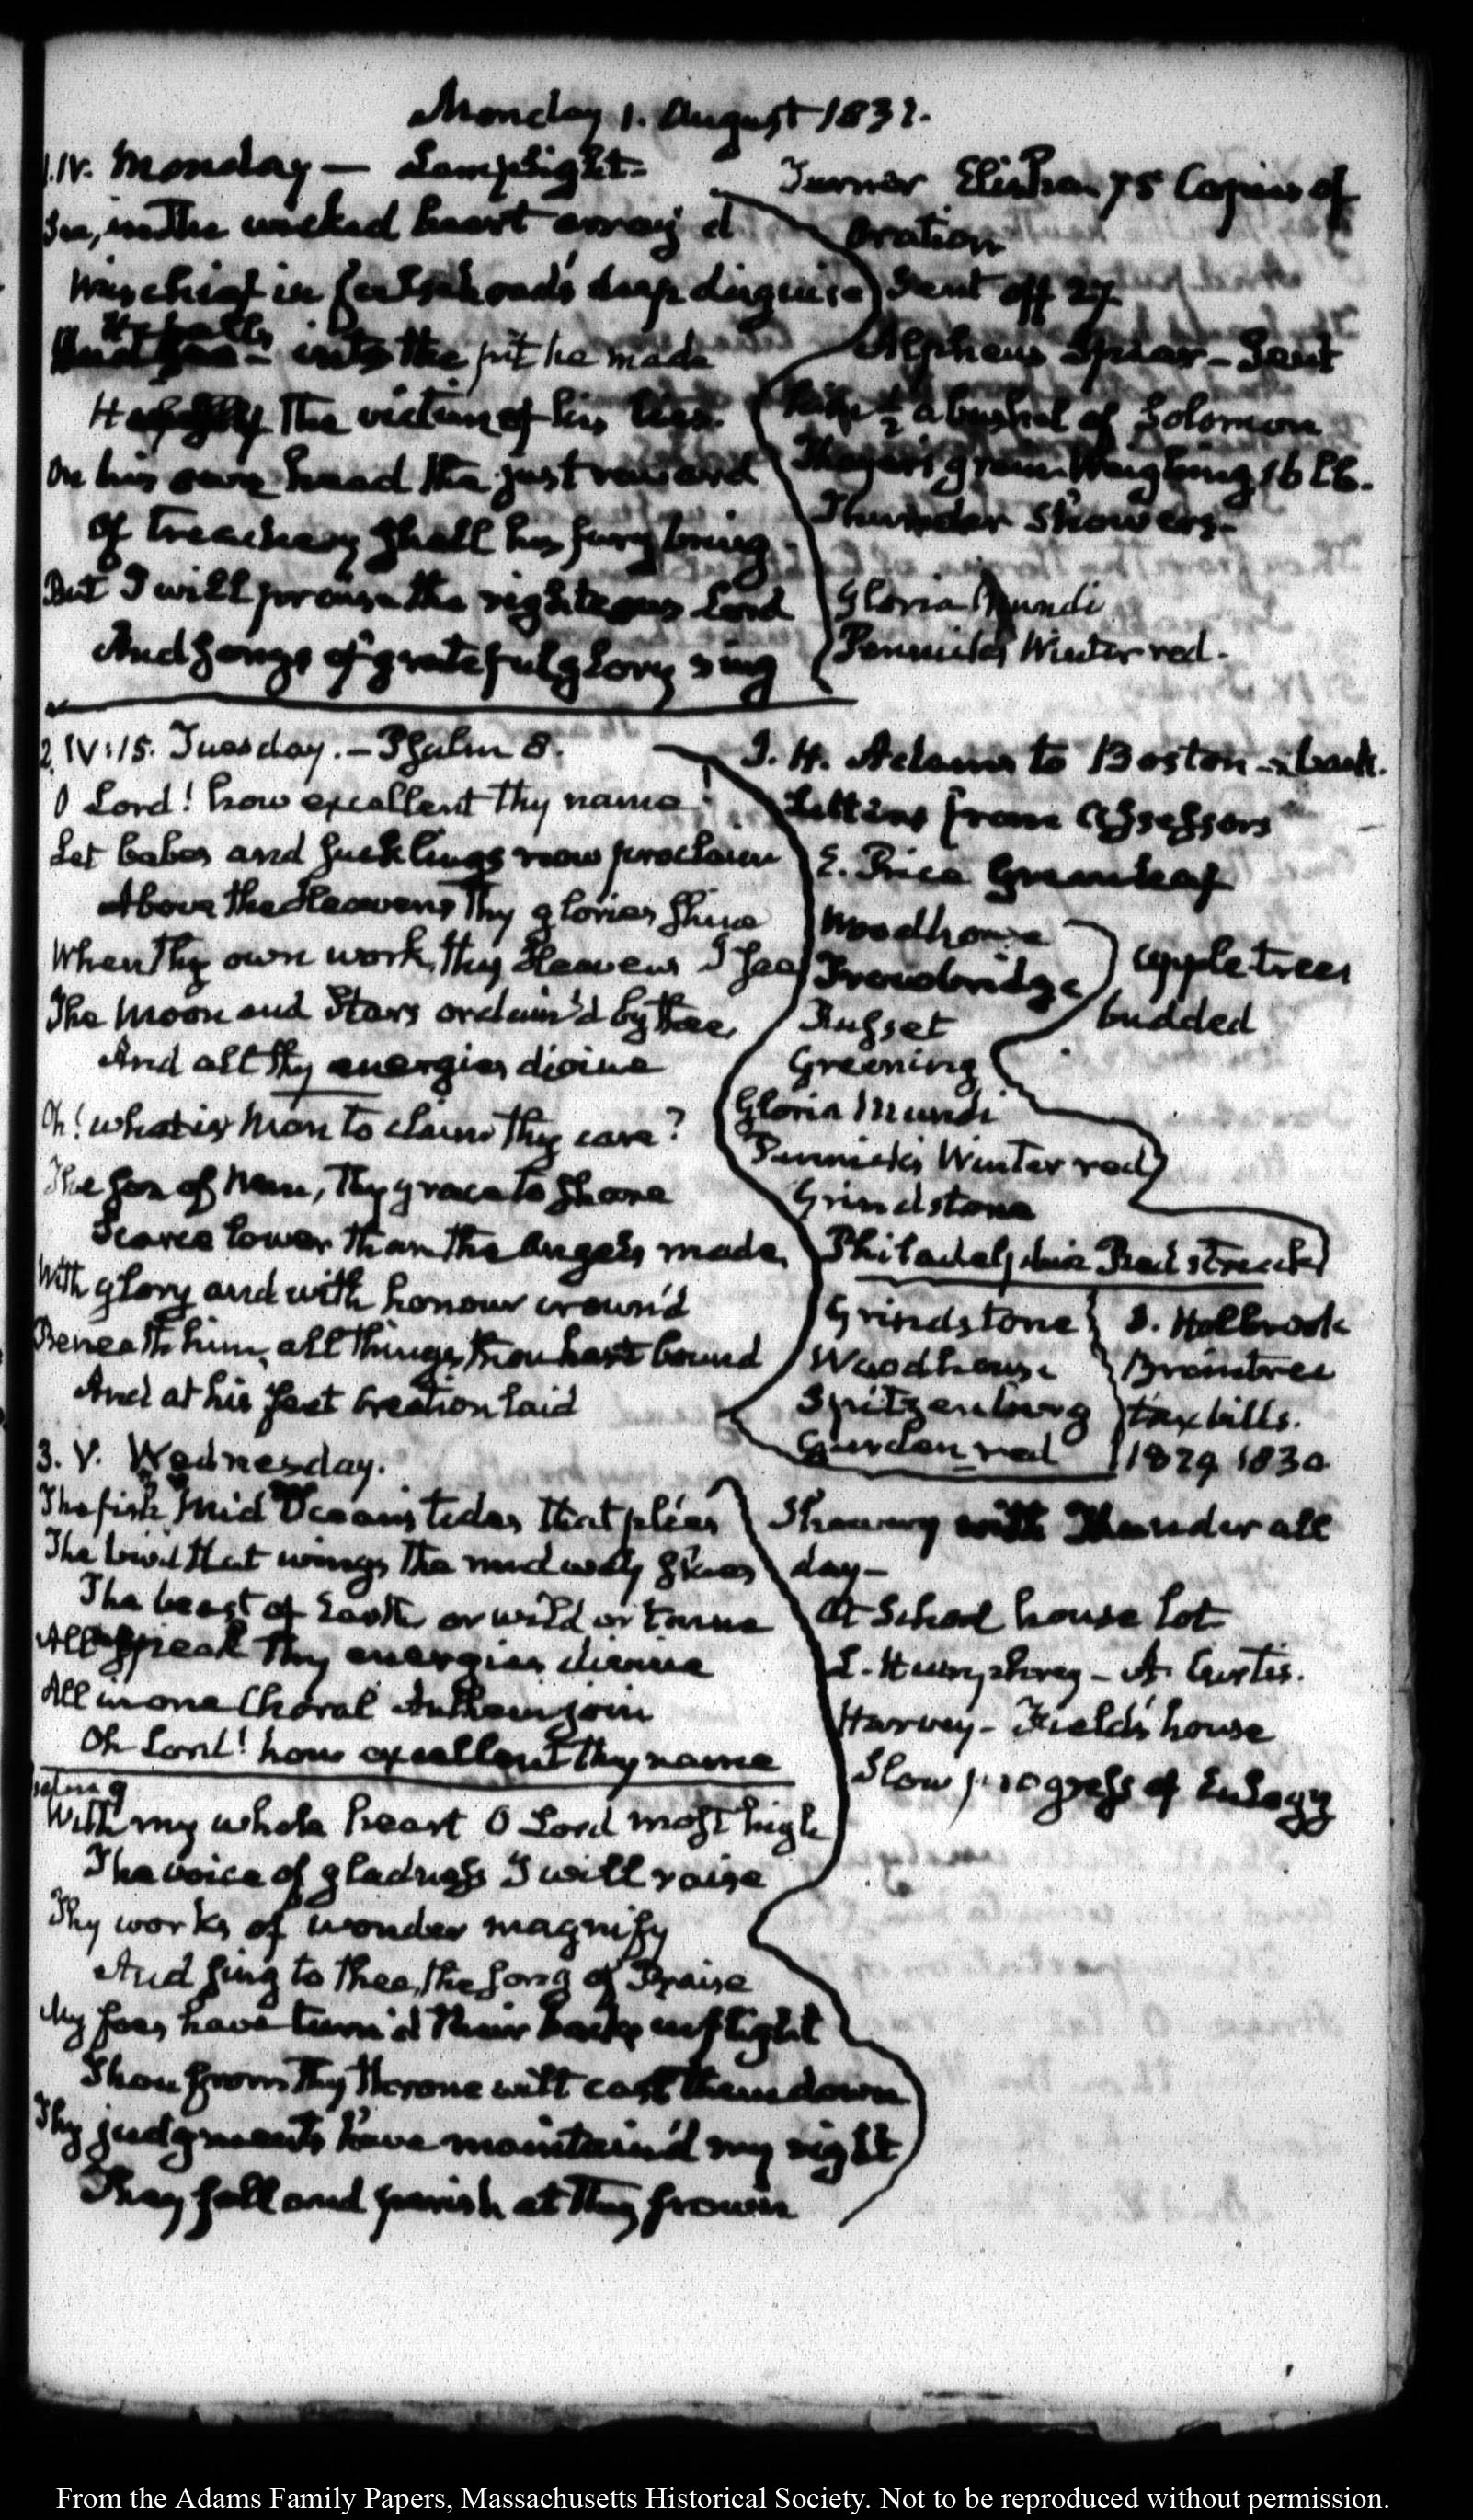 Monday 1. August 1831.
1. IV. Monday — Lamplight.
See, in the wicked heart array'd
Mischief in falsehood's deep disguise
He falls into the pit he made
The victim of his lies.
On his own head the just reward
Of treachery shall his fury bring
But I will praise the righteous Lord
And songs of grateful glory sing
Turner Elisha 75 Copies of
Oration
Sent off 27
Alpheus Spear — Sent
him ½ a bushel of Solomon
Thayer's Weighing 16 lb.
Thunder Showers.
Gloria Mundi
Pennick's Winter red.
2. IV:15. Tuesday. — Psalm 8.
O Lord! how excellent thy name!
Let babes and sucklings now proclaim
Above the Heavens Thy glories shine
When Thy own work, thy Heavens I see
The Moon and Stars ordain'd by thee,
And all thy energies divine
Oh! what is Man to claim thy care?
The Son of Man, Thy grace to share
Scarce lower than the Angels made,
With glory and with honour crown'd
Beneath him, all things thou hast bound
And at his feet Creation laid
I. H. Adams to Boston & back.
Letters from Assessors
E. Price Greenleaf
Woodhouse
Trowbridge
Russet
Greening
Gloria Mundi
Pennick's Winter red
Grindstone
Philadelphia Red streak
apple trees
budded
Grindstone
Woodhouse
Spitzenburg
Garden red
D. Holbrook
Braintree
tax bills.
1829 1830
3. V. Wednesday.
The fish, Mid Ocean's tides that plies
The bird that wings the midway skies
The beast of Earth, or wild or tame
All speak Thy energies divine
All in one Choral Anthem join
Oh Lord! how excellent thy name
Showery with Thunder all
day —
At School house lot
L. Humphrey — A. Curtis.
Harvey — Field's house
Slow progress of Eulogy
Psalm 9
With my whole heart O Lord most high
The voice of gladness I will raise
Thy works of wonder magnify
And sing to thee, the song of Praise
My foes have turn'd their backs in flight
Thou from Thy throne wilt cast them down
Thy judgments have maintain'd my right
They fall and perish at thy frown
From the Adams Family Papers, Massachusetts Historical Society. Not to be reproduced without permission.